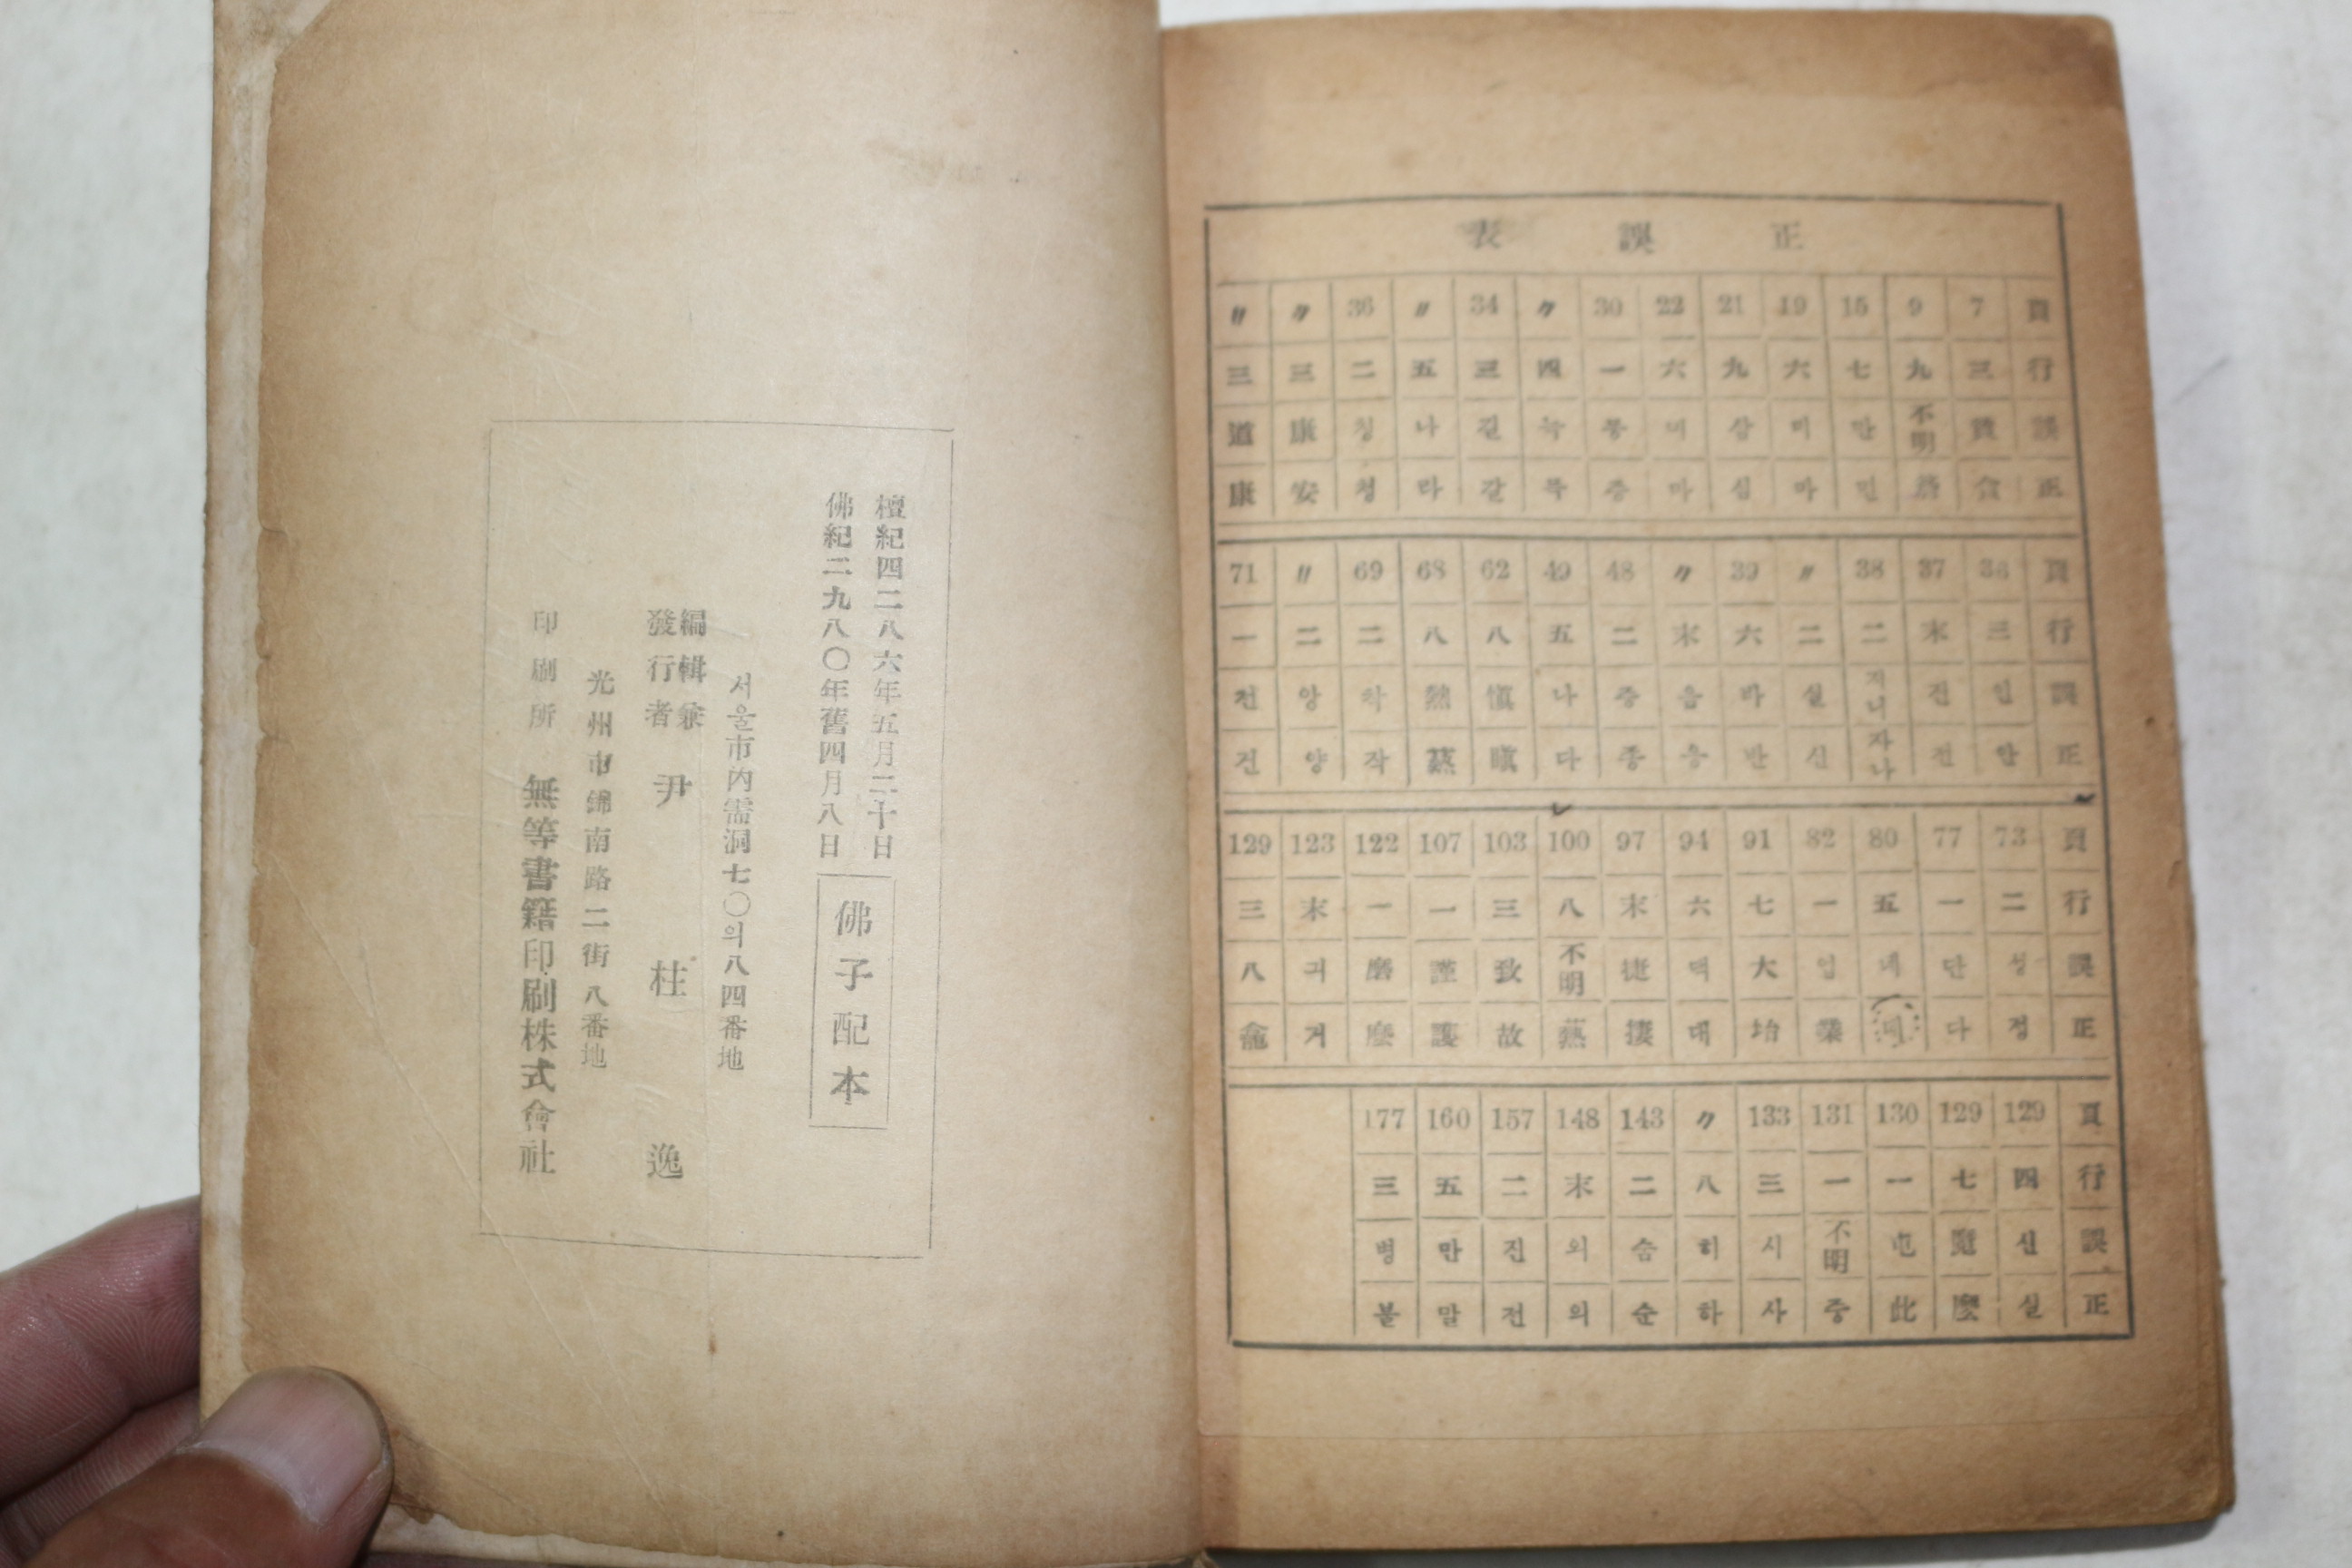 正誤表
頁 7 9 15 19 21 22 30 〃 34 〃 36 〃 〃
行 三 九 七 六 九 六 一 四 三 五 二 三 三
誤 不明 만 미 삼 녹 길 나 칭 康 道
正 민 마 심 마 중 목 갈 라 청 安 康
頁 36 37 38 〃 39 〃 48 49 62 68 69 〃 71
行 三 末 二 二 六 末 二 五 八 八 二 二 一
誤 인 건 지니 설 바 음 중 나 愼 然 착 앙 천
正 안 전 자나 신 반 응 종 다 瞋 蒸 작 양 건
頁 73 77 80 82 91 94 97 100 103 107 122 123 129
行 二 一 五 一 七 六 末 八 三 一 一 末 三
誤 성 단 네 업 大 택 捷 不明 致 謹 磨 긔 八
正 정 다 業 대 蕪 故 護 麽 거 龕
頁 129 129 130 131 133 〃 143 148 157 160 177
行 四 七 一 一 三 八 二 末 二 五 三
誤 신 不明 시 히 숨 외 진 만 병
正 실 麽 此 중 사 하 순 의 전 말 불
檀紀四二八六年五月二十日
佛紀二九八〇年舊四月八日
佛子配本
서울市内需洞七〇의八四番地
編輯兼
發行者 尹柱逸
光州市錦南路二街八番地
印刷所 無等書籍印刷株式會社